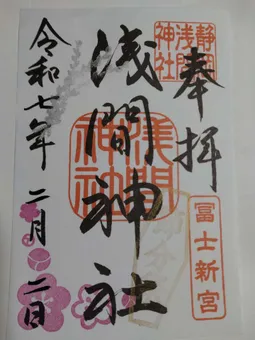 奉拝
静岡浅間神社
冨士新宮
浅間神社
浅間神社
令和七年 二月 二日